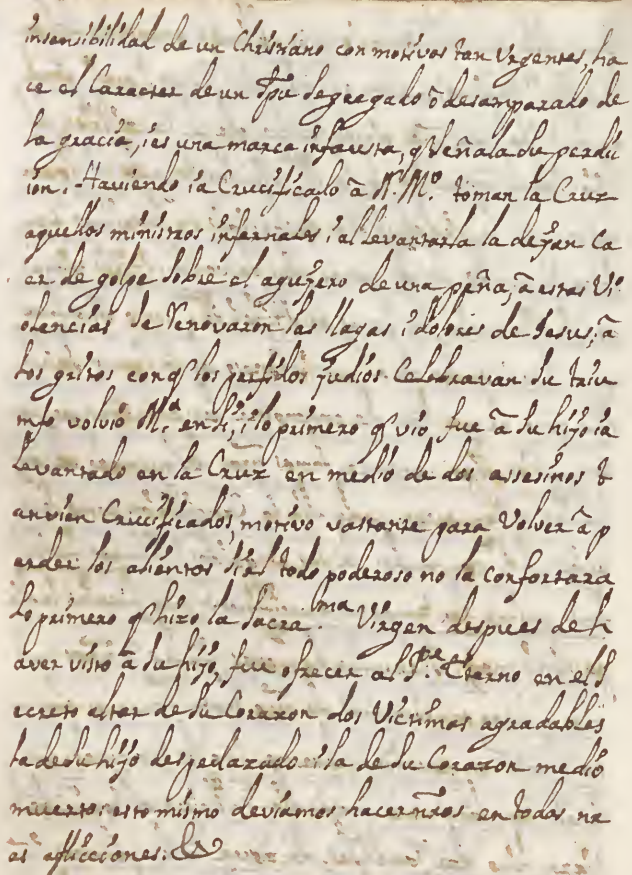 insensibilidad de un Christiano con motivos tan Vrgentes, ha
ce el Caracter de un Spu segregado ò desamparado de
la gracia, i es una marca infausta, q̃ señala su perdic
ion. Haviendo ia Crucificado à N. Mo. toman la Cruz
aquellos ministros infernales i al levantarla la dejan Ca
er de golpe sobre el agujero de una peña, à estas Vi
olencias se renovaron las llagas i dolores de Jesus, à
los gritos con q̃ los perfidos judios Celebravan su triu
mfo volviò Ma. en si, i lo primero q̃ viò fue à su hijo ia
levantado en la Cruz en medio de dos assesinos t
anvien Crucificados, motivo vastante para Volver à p
erder los alientos si el todo poderoso no la confortara
Lo primero q̃ hizo la Sacra.ma Virgen despues de h
aver visto à su hijo, fue ofrecer al Pe. Eterno en el S
ecreto altar de su Corazon dos Victimas agradables
la de su hijo despedazado i la de su Corazon medio
muerto: esto mismo deviamos hacer nros en todas nr
as aflicciones.